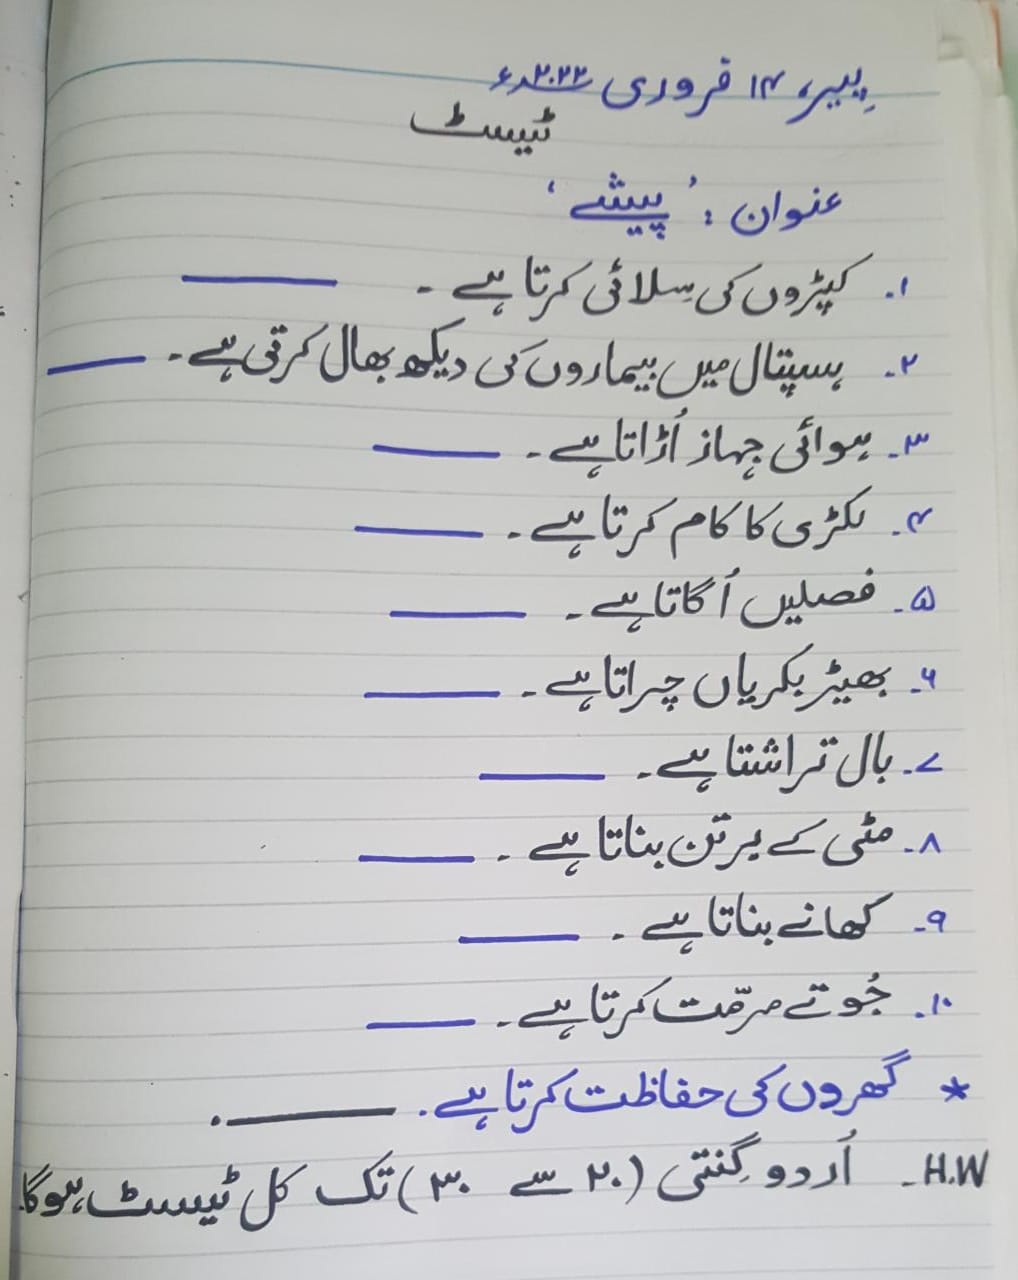 پیر، ۱۴ فروری ۲۰۲۲ء
ٹیسٹ
عنوان : ’پیشے‘
۱. کپڑوں کی سِلائی کرتا ہے ۔ ______
۲. ہسپتال میں بیماروں کی دیکھ بھال کرتی ہے۔ ______
۳۔ ہوائی جہاز اُڑاتا ہے۔ ______
۴. لکڑی کا کام کرتا ہے۔ ______
۵۔ فصلیں اُگاتا ہے۔ ______
۶۔ بھیڑ بکریاں چراتا ہے۔ ______
۷۔ بال تراشتا ہے۔ ______
۸۔ مٹی کے برتن بناتا ہے ۔ ______
۹۔ کھانے بناتا ہے ۔ ______
۱۰. جُوتے مرمّت کرتا ہے۔ ______
* گھروں کی حفاظت کرتا ہے۔ ______.
H.W۔ اُردو گِنتی (۲۰ سے ۳۰) تک کل ٹیسٹ ہوگا۔